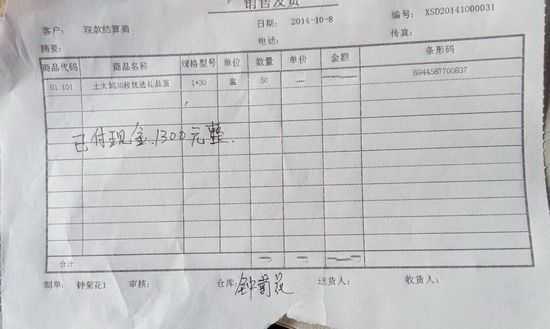 销售发货
客户: 现款结算商 日期: 2014-10-8 编号: XSD20141000031
摘要: 电话: 传真:
商品代码 商品名称 规格型号 单位 数量 单价 金额 条形码
01 101 1*30 盒 50 6944567700837
已付现金.1300元整.
合计
制单: 钟菊花1 审核: 仓库: 钟菊花 送货人: 收货人: